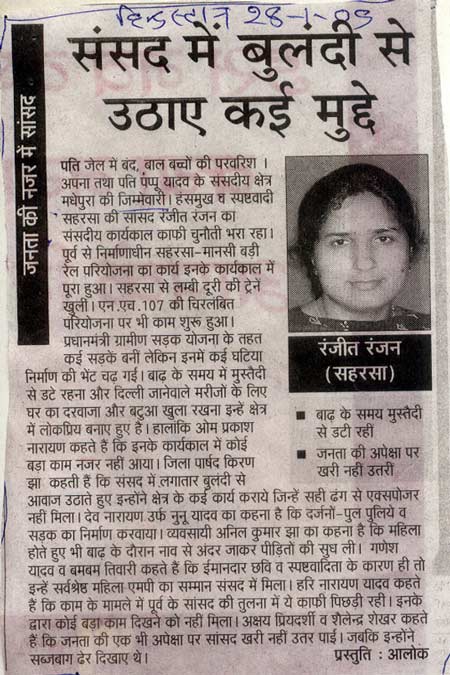 हिन्दुस्तान 28-1-09
जनता की नजर में सांसद
संसद में बुलंदी से
उठाए कई मुद्दे
पति जेल में बंद, बाल बच्चों की परवरिश ।
अपना तथा पति पप्पू यादव के संसदीय क्षेत्र
मधेपुरा की जिम्मेवारी। हंसमुख व स्पष्टवादी
सहरसा की सांसद रंजीत रंजन का
संसदीय कार्यकाल काफी चुनौती भरा रहा।
पूर्व से निर्माणाधीन सहरसा-मानसी बड़ी
रेल परियोजना का कार्य इनके कार्यकाल में
पूरा हुआ। सहरसा से लम्बी दूरी की ट्रेनें
खुली। एन.एच.107 की चिरलंबित
परियोजना पर भी काम शुरू हुआ।
प्रधानमंत्री ग्रामीण सड़क योजना के तहत
कई सड़के बनीं लेकिन इनमें कई घटिया
निर्माण की भेंट चढ़ गई। बाढ़ के समय में मुस्तैदी
से डटे रहना और दिल्ली जानेवाले मरीजों के लिए
घर का दरवाजा और बटुआ खुला रखना इन्हें क्षेत्र
में लोकप्रिय बनाए हुए है। हालांकि ओम प्रकाश
नारायण कहते हैं कि इनके कार्यकाल में कोई
बड़ा काम नजर नहीं आया। जिला पार्षद किरण
झा कहती हैं कि संसद में लगातार बुलंदी से
आवाज उठाते हुए इन्होंने क्षेत्र के कई कार्य कराये जिन्हें सही ढंग से एक्सपोजर
नहीं मिला। देव नारायण उर्फ नुनू यादव का कहना है कि दर्जनों-पुल पुलिये व
सड़क का निर्माण करवाया। व्यवसायी अनिल कुमार झा का कहना है कि महिला
होते हुए भी बाढ़ के दौरान नाव से अंदर जाकर पीड़ितों की सुध ली। गणेश
यादव व बमबम तिवारी कहते हैं कि ईमानदार छवि व स्पष्टवादिता के कारण ही तो
इन्हें सर्वश्रेष्ठ महिला एमपी का सम्मान संसद में मिला। हरि नारायण यादव कहते
हैं कि काम के मामले में पूर्व के सांसद की तुलना में ये काफी पिछड़ी रही। इनके
द्वारा कोई बड़ा काम दिखने को नहीं मिला। अक्षय प्रियदर्शी व शैलेन्द्र शेखर कहते
हैं कि जनता की एक भी अपेक्षा पर सांसद खरी नहीं उतर पाई। जबकि इन्होंने
सब्जबाग ढेर दिखाए थे।
प्रस्तुति : आलोक
रंजीत रंजन
(सहरसा)
■ बाढ़ के समय मुस्तैदी
से डटी रहीं
■ जनता की अपेक्षा पर
खरी नहीं उतरीं